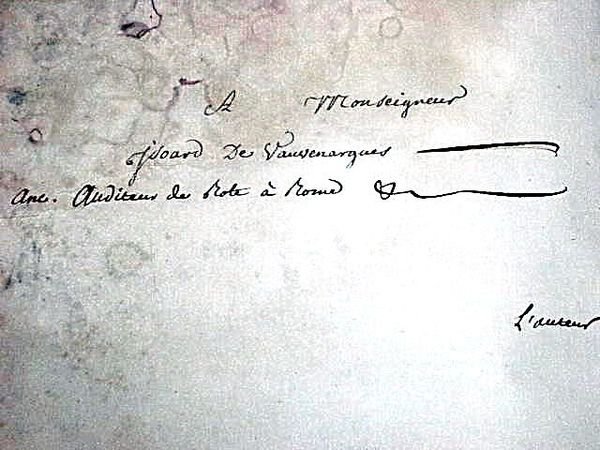 A Monseigneur
Isoard De Vauvenargues
Anc. Auditeur de Rote à Rome
L'auteur